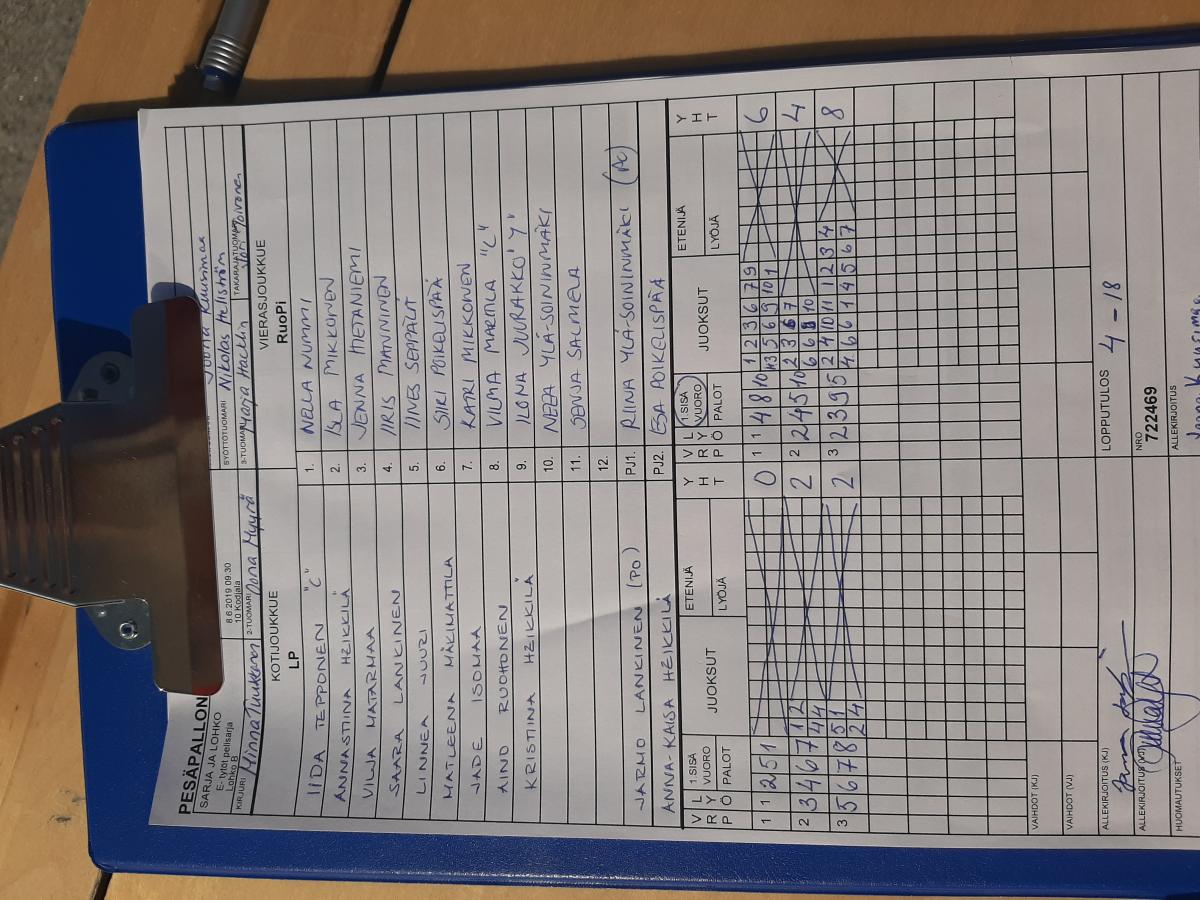 PESÄPALLON
SARJA JA LOHKO
E- tytöt pelisarja
Lohko B
8.6.2019 09:30
10 Kodjala
SYÖTTÖTUOMARI Nikolas Hellström
KIRJURI Minna Tuukkanen 2-TUOMARI Oona Myyrä 3-TUOMARI Marja Hacklin TAKARAJATUOMARI
KOTIJOUKKUE VIERASJOUKKUE
LP RuoPi
IIDA TEPPONEN "C" 1. NELLA NUMMI
ANNASTIINA HEIKKILÄ 2. ISLA MIKKONEN
VILJA MATARMAA 3. JENNA HIETANIEMI
SAARA LANKINEN 4. IIRIS MANNINEN
LINNEA JUURI 5. IINES SEPPÄLÄ
MATLEENA MÄKIMATTILA 6. SIIRI POIKELISPÄÄ
JADE ISOMAA 7. KATRI MIKKONEN
AINO RUOHONEN 8. VILMA MARTILA "C"
KRISTIINA HEIKKILÄ 9. ILONA JUURAKKO "J"
10. NEEA YLÄ-SOININMÄKI
11. SENJA SALMELA
12.
JARMO LANKINEN (PO) PJ1. RIINA YLÄ-SOININMÄKI
ANNA-KAISA HEIKKILÄ PJ2. ESA POIKELISPÄÄ
V R P L Y Ö 1 SISÄ VUORO PALOT JUOKSUT ETENIJÄ LYÖJÄ Y H T V R P L Y Ö 1 SISÄ VUORO PALOT JUOKSUT ETENIJÄ LYÖJÄ Y H T
1 1 2 5 1 0 1 1 4 8 10 1 2 3 6 7 9 6
5 6 9 10 1
2 3 4 6 7 1 2 2 2 2 4 5 10 2 3 6 7 4
4 4 6 6 8 10
3 5 6 7 8 5 1 2 3 2 3 9 5 2 4 10 11 1 2 3 4 8
2 4 4 6 6 1 4 5 6 7
VAIHDOT (KJ)
VAIHDOT (VJ)
ALLEKIRJOITUS (KJ) LOPPUTULOS 4 - 18
ALLEKIRJOITUS (VJ) NRO 722469
HUOMAUTUKSET ALLEKIRJOITUS